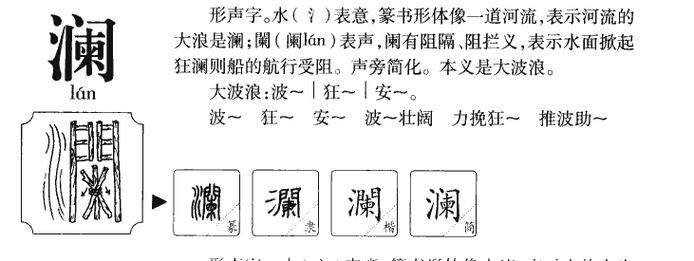 澜
lán
形声字。水(氵)表意,篆书形体像一道河流,表示河流的
大浪是澜;闌(阑lán)表声,阑有阻隔、阻拦义,表示水面掀起
狂澜则船的航行受阻。声旁简化。本义是大波浪。
大波浪:波~｜狂~｜安~。
波~ 狂~ 安~ 波~壮阔 力挽狂~ 推波助~
瀾 篆 瀾 隶 瀾 楷 澜 简